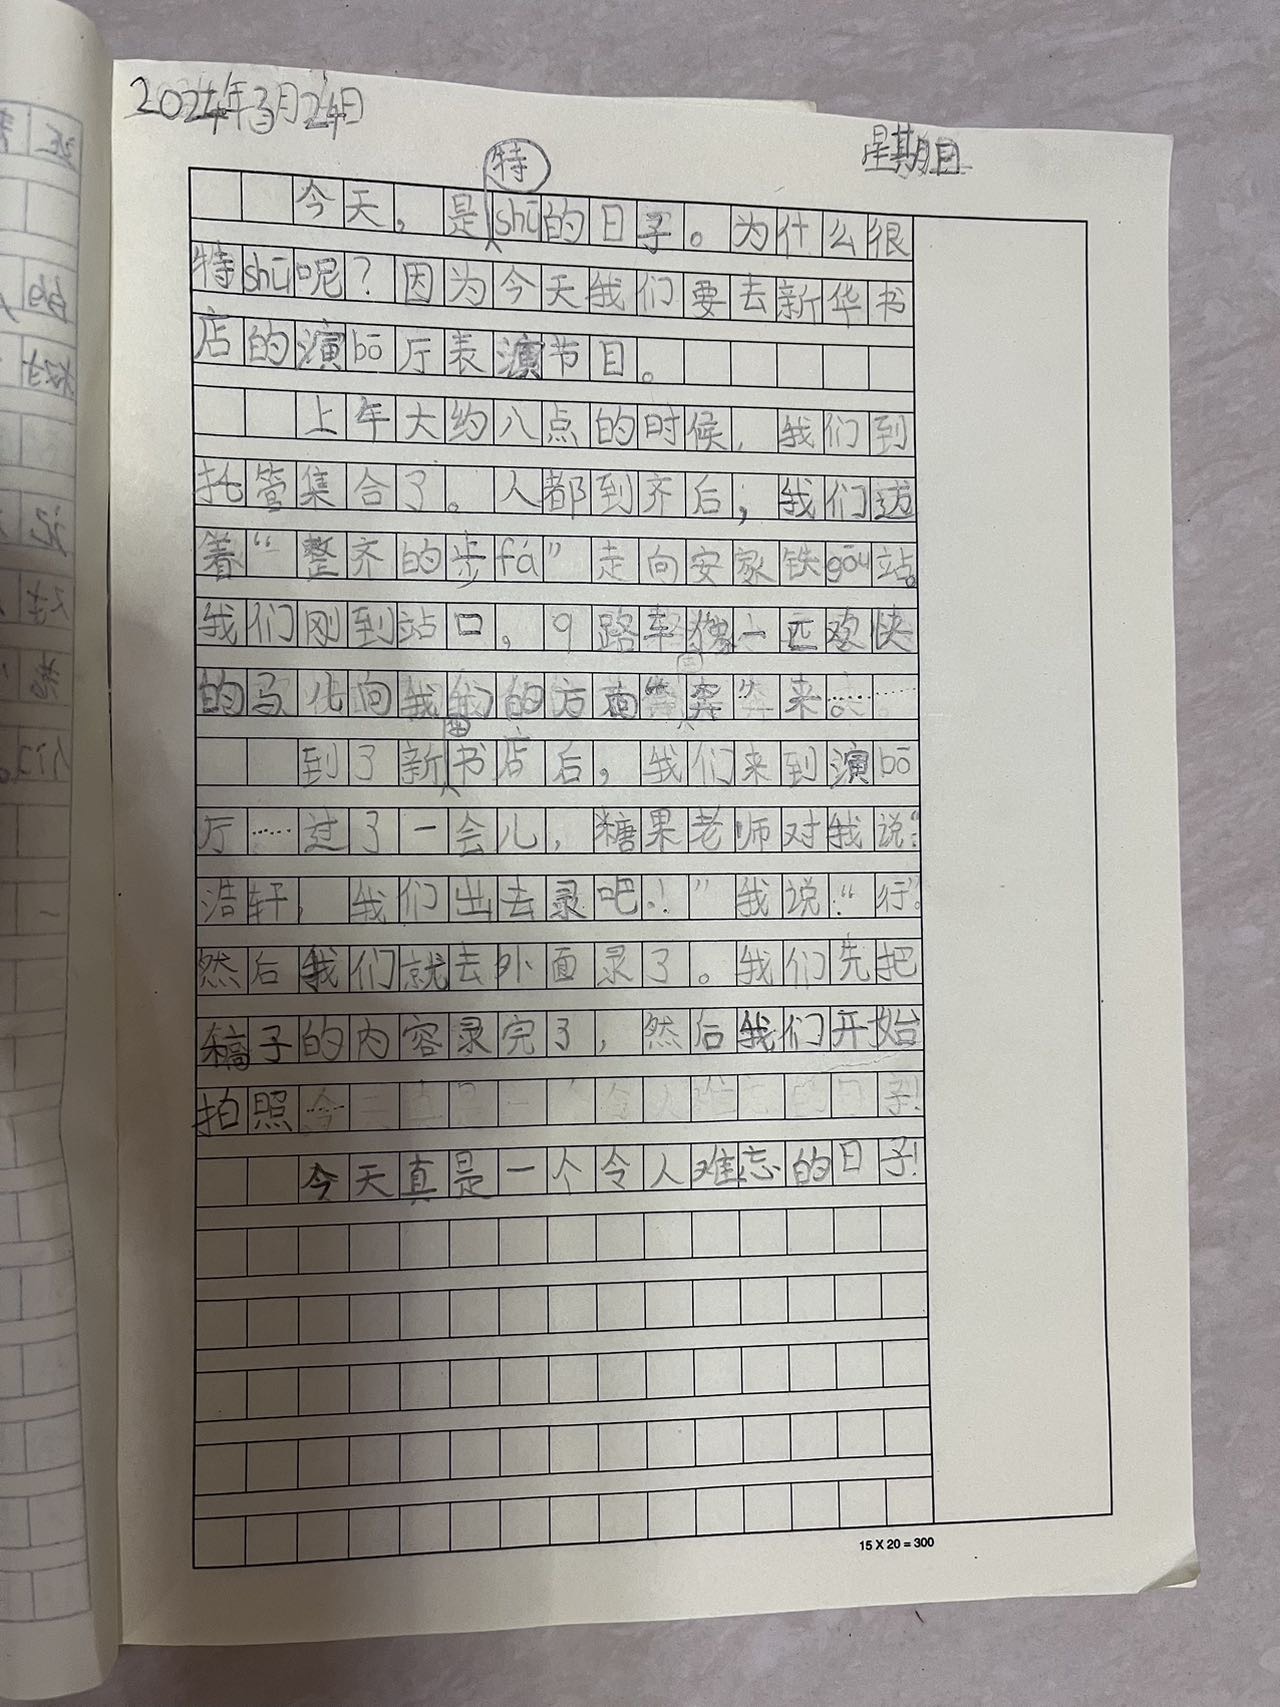 2024年3月24日
星期日
今天，是特shū的日子。为什么很
特shū呢？因为今天我们要去新华书
店的演bō厅表演节目。
上午大约八点的时候，我们到
托管集合了。人都到齐后，我们迈
着“整齐的步fá”走向安家铁gōu站。
我们刚到站口，9路车像一匹欢快
的马儿向我们的方向“奔”来。……
到了新书店后，我们来到演bō
厅……过了一会儿，糖果老师对我说：“
浩轩，我们出去录吧！”我说：“行”。
然后我们就去外面录了。我们先把
稿子的内容录完了，然后我们开始
拍照……
今天真是一个令人难忘的日子！
15 X 20 = 300